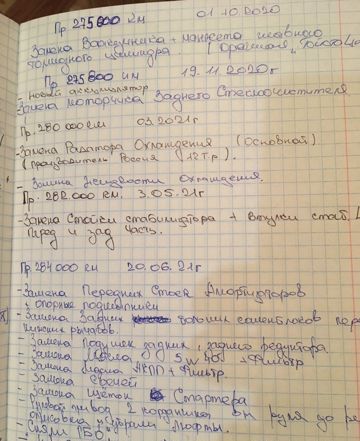 Пр. 275000 км 01.10.2020
Замена Ваакумника + манжета главного
тормозного цилиндра. (Оригинал,
Пр 275800 км 19.11.2020г
новый аккумулятор
Замена моторчика Заднего Стеклоочистителя
Пр. 280 000 км 03.2021г
-Замена Радиатора Охлаждения (Основной)
(производитель Россия 12 Тр).
- Замена Жидкости Охлаждения.
Пр. 282.000 км. 3.05.21г
-Замена Стойки стабилизатора + втулки стаб.
Перед и зад часть.
Пр 284000 км 20.06.21г
-Замена Передних Стоек Амортизаторов
+ опорные подшипники
- Замена Задних сайлентблоков
нижних рычагов.
- Замена подушек задних, заднего редуктора.
- Замена Масла 5w40 + Фильтр
- Замена Масла АКПП + Фильтр.
- Замена Свечей
- Замена Щёток Стартера
- привод 2 он руля до